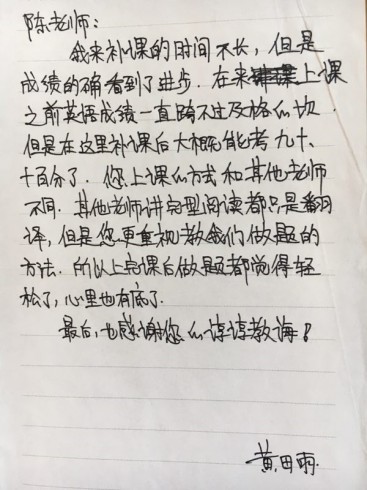 陈老师:
我来补课的时间不长,但是
成绩的确看到了进步.在来上课
之前英语成绩一直跨不过及格么坎
但是在这里补课后大概能考九十、
一百分了.您上课么方式和其他老师
不同.其他老师讲完型阅读都只是翻
译,但是您更重视教我们做题的
方法.所以上完课后做题都觉得轻
松了,心里也有底了.
最后,也感谢您么谆谆教诲!
黄田雨.